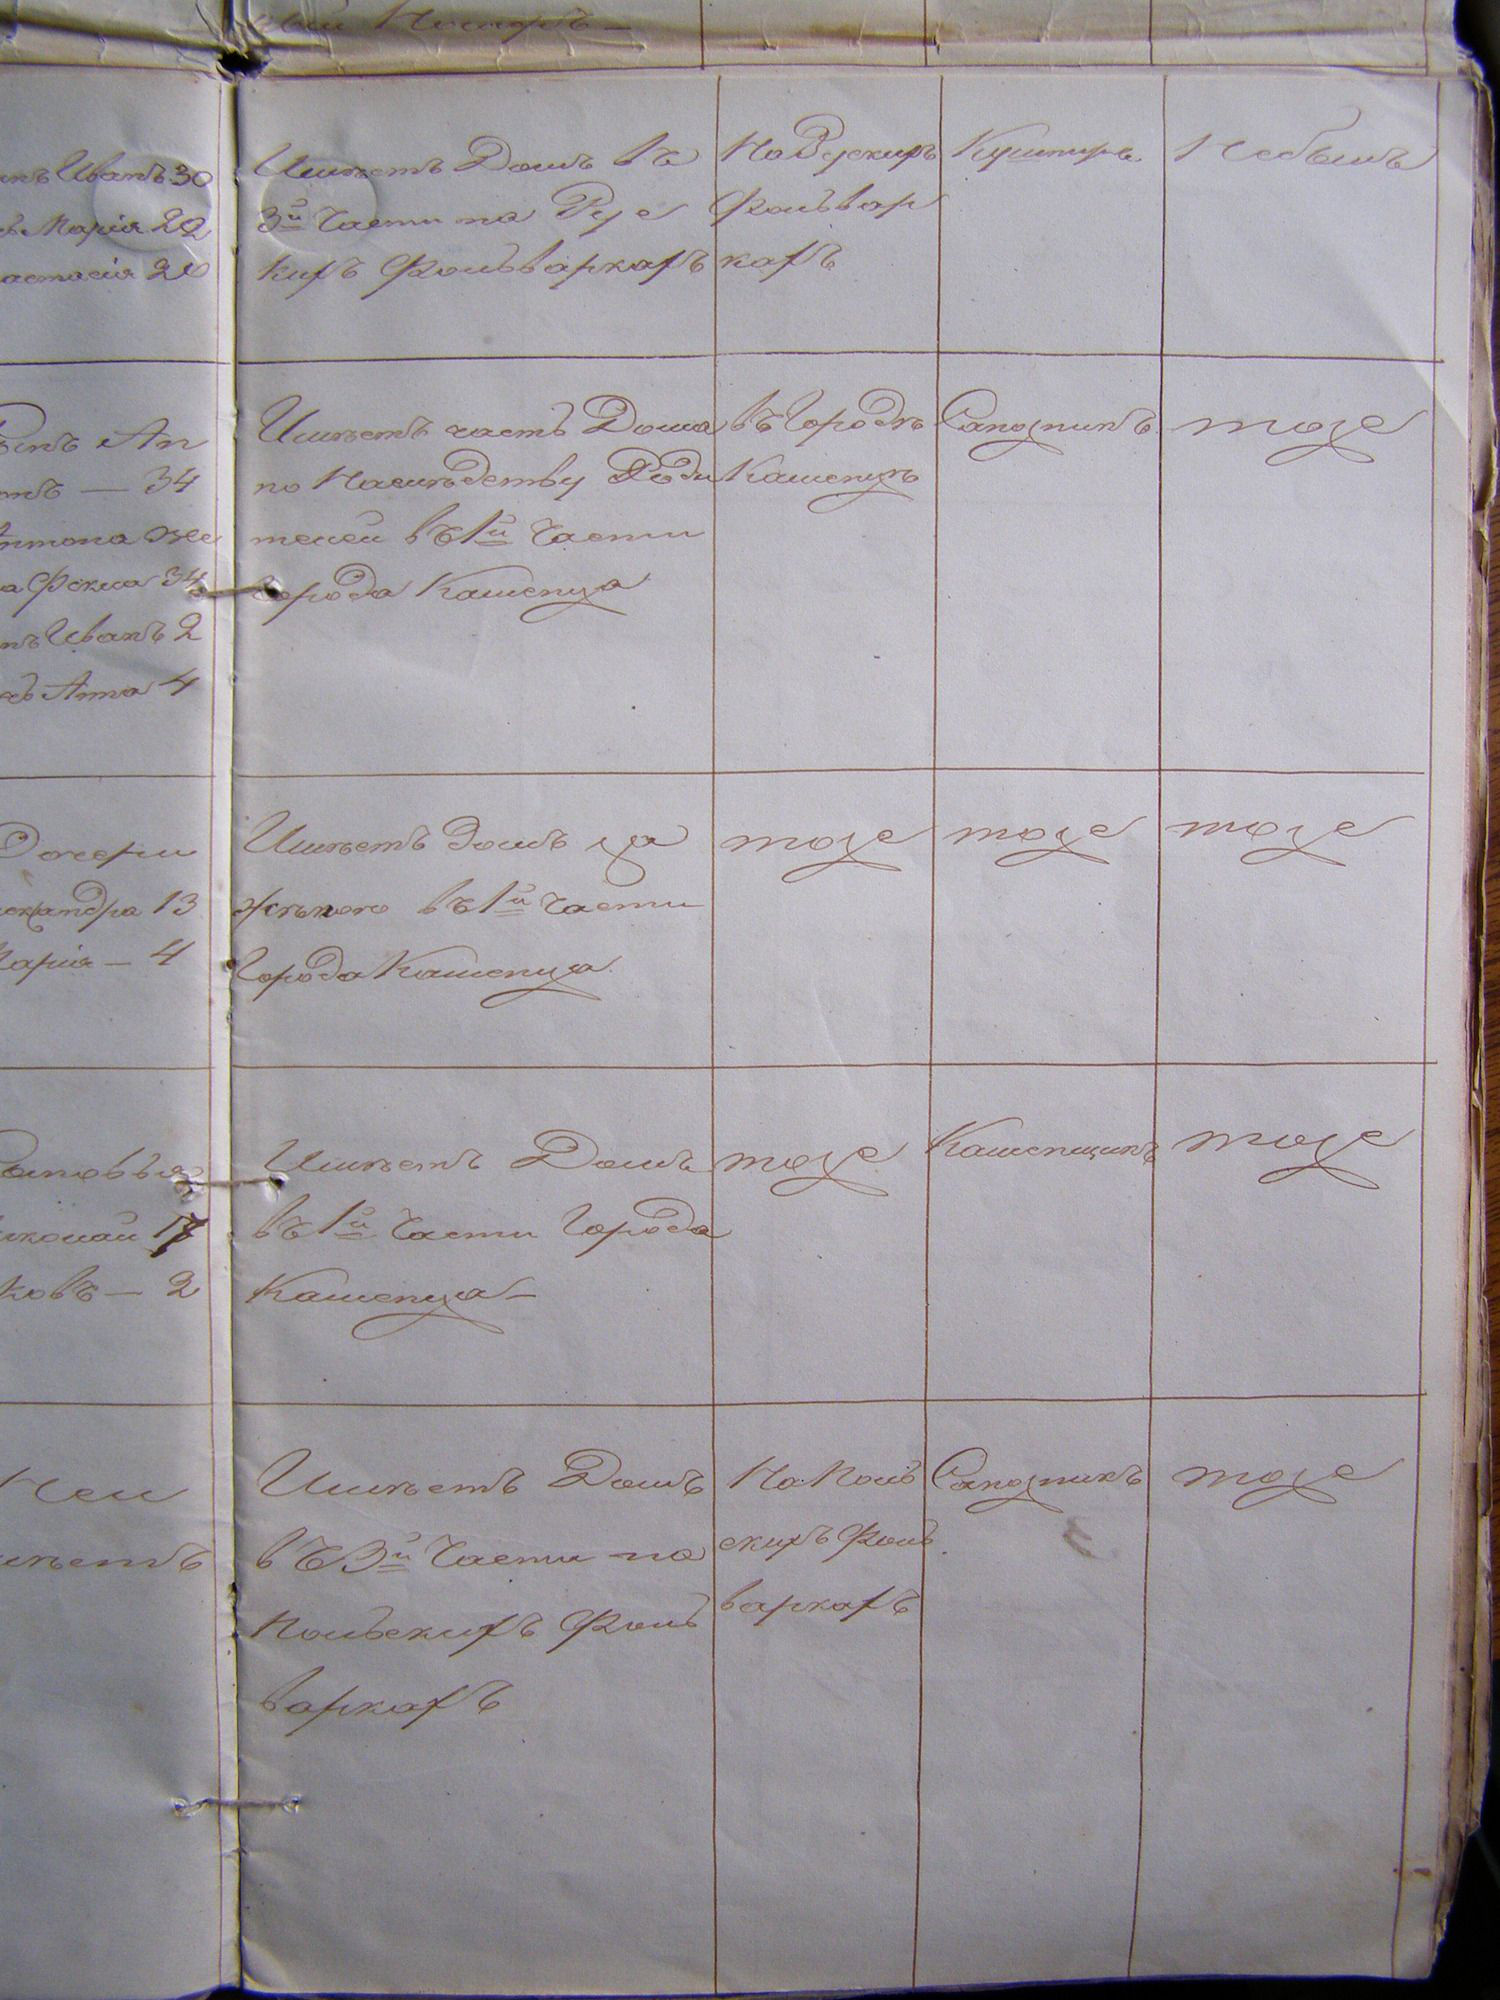 Иванъ 30
Марія 22
20
Имѣетъ Домъ въ
3й Части на Рус
кихъ Фольваркахъ
На Рускихъ
Фольвар
кахъ
Кушниръ
Небылъ
Ан
— 34
Антона же
Фекла 34
Иванъ 2
Анна 4
Имѣетъ часть Дома
по Наслѣдству Роди
телей въ 1й Части
Города Каменца
въ Городѣ
Каменцѣ
Сапожникъ
тоже
Дочери
13
Марія — 4
Имѣетъ домъ за
женою въ 1й Части
Города Каменца
тоже
тоже
тоже
Сыновья
17
— 2
Имѣетъ Домъ
въ 1й Части Города
Каменца —
тоже
Каменщикъ
тоже
Неи
мѣетъ
Имѣетъ Домъ
въ 3й Части на
Польскихъ Фоль
варкахъ
На Поль
скихъ Фоль
варкахъ
Сапожникъ
тоже